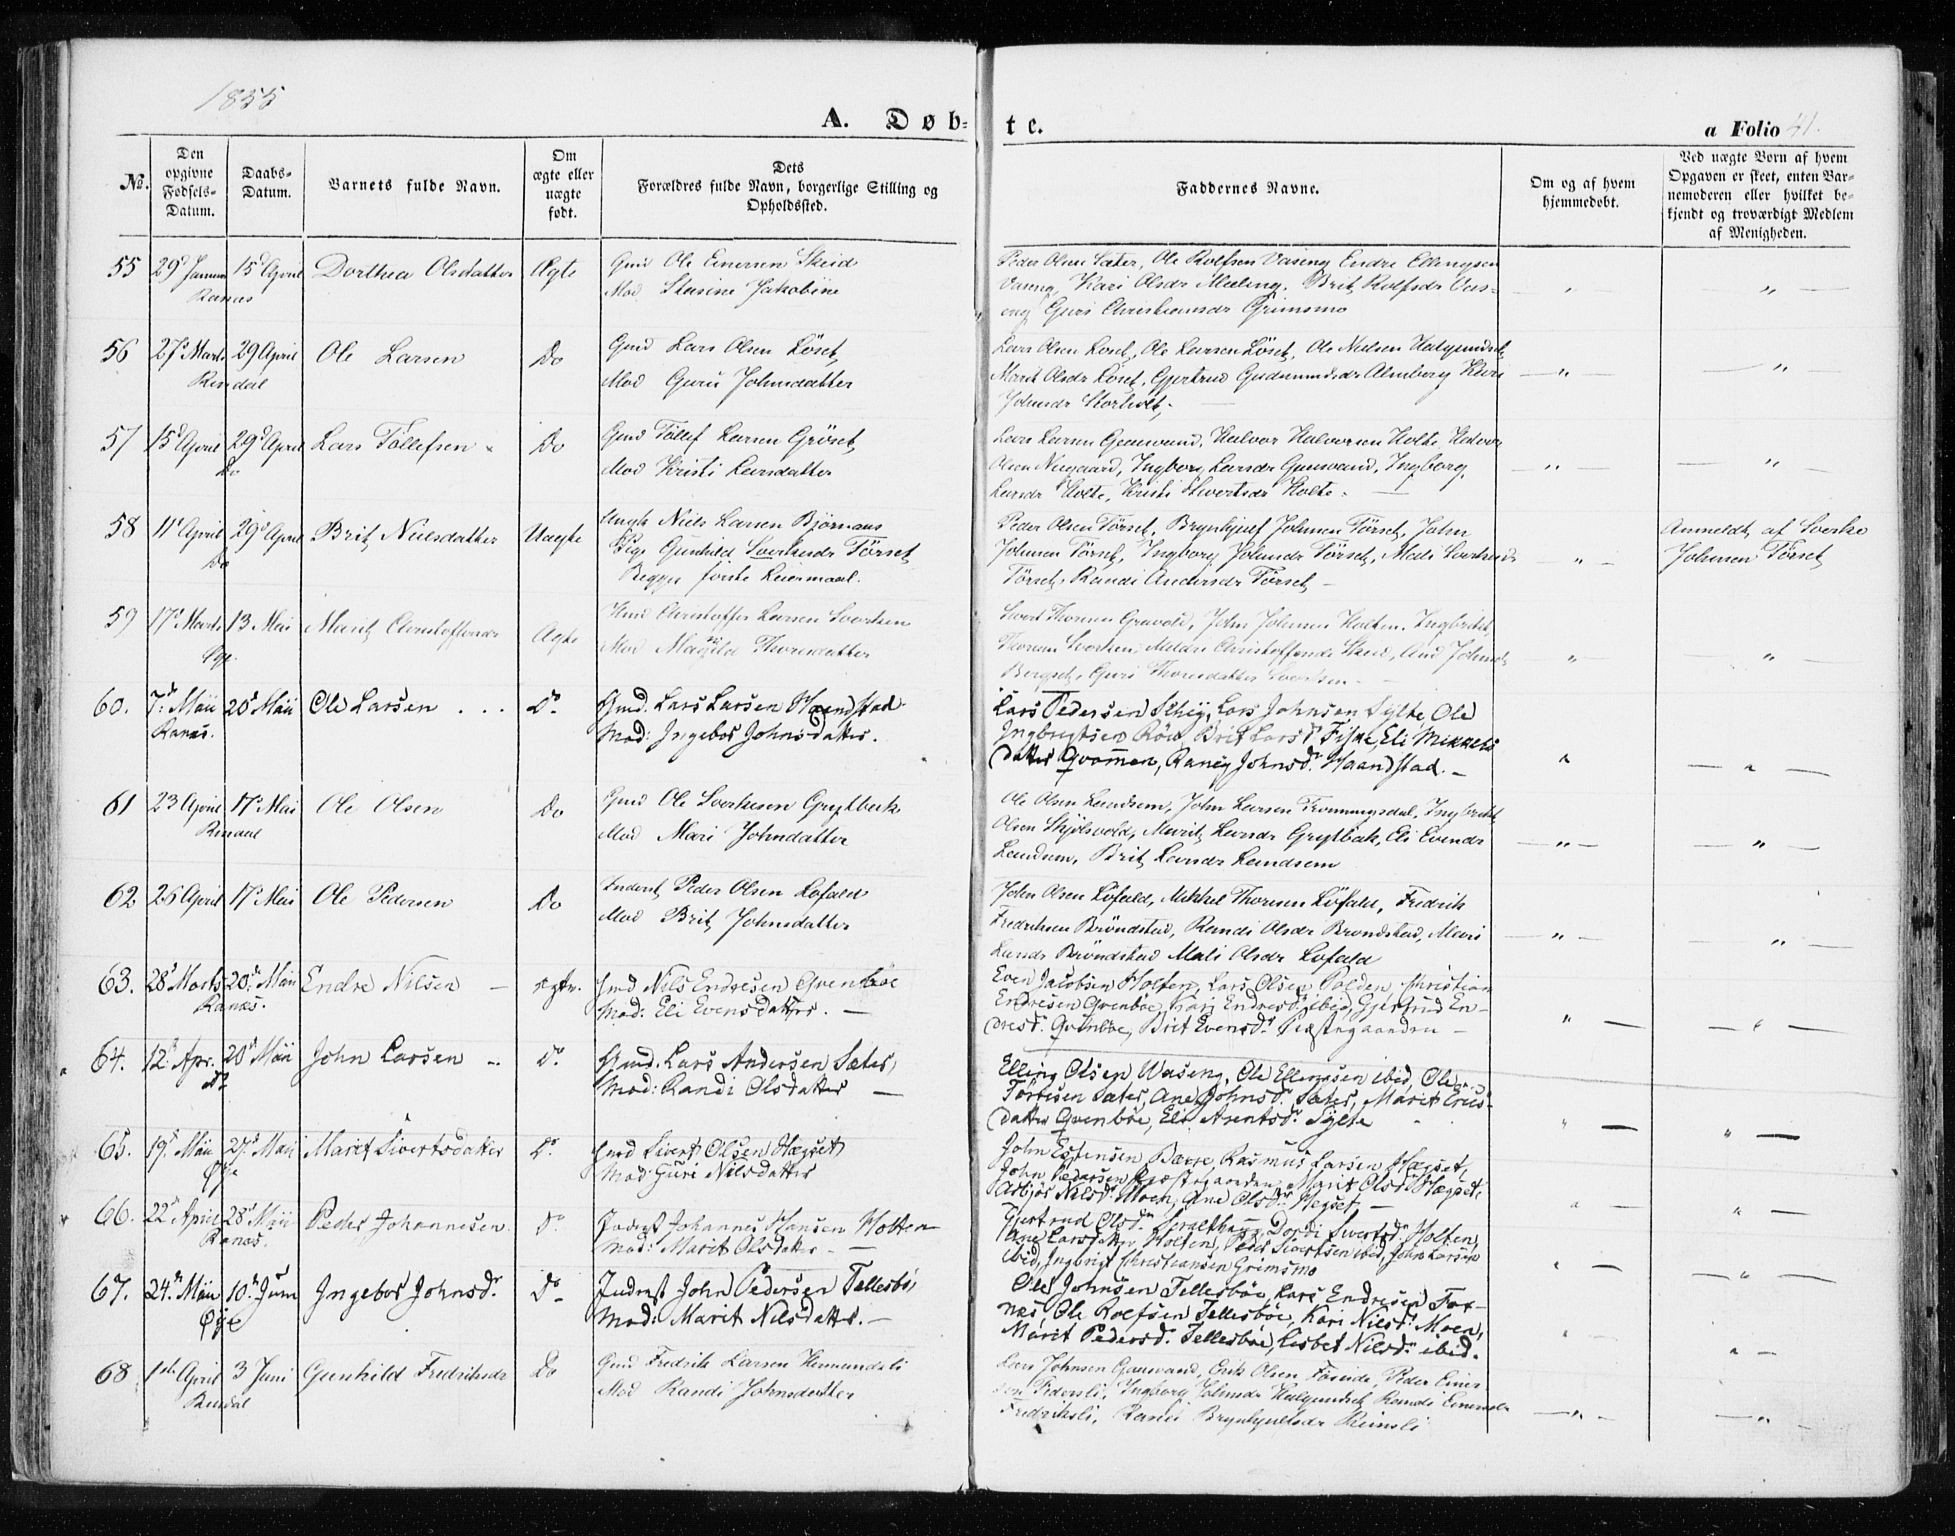 1855
A. Døb-
te.
a Folio 41.
No.
Den opgivne Fødsels-Datum.
Daabs-Datum.
Barnets fulde Navn.
Om ægte eller uægte født.
Dets Forældres fulde Navn, borgerlige Stilling og Opholdssted.
Faddernes Navne.
Om og af hvem hjemmedøbt.
Ved uægte Born af hvem Opgaven er skeet, enten Barnemoderen eller hvilket bekjendt og troværdigt Medlem af Menigheden.
55 29d Januar 15d April Dorthea Olsdatter Ægte Gmd Ole Einersen Skeid
Ranæs Mod Jakobine
Peder Olsen Sæter, Ole Rolfsen Vaseng Endre Ellingsen
Vaseng, Kari Olsdr Mæling, Brit Rolfsdr Vas-
eng Guri Christiansdr Grimsmo
56 27d Marts 29 April Ole Larsen Do Gmd Lars Olsen Löset,
Rindal Mod Guru Johnsdatter
Lars Olsen Löset, Ole Larsen Löset, Ole Nielsen Halgundset,
Marit Olsdr Löset, Gjertrud Gudmundsdr Almberg
Johnsdr Storholt,
57 15d April 29d April Lars Tøllefsen Do Gmd Tøllef Larsen Grøset
Do Mod Kristi Larsdatter
Lars Larsen Gaasvand, Halvor Halvorsen Holte Halvor
Olsen Nergaard, Ingborg Larsdr Gaasvand, Ingborg
Larsdr Holte, Kristi Sivertsdr Holte.
58 11d April 29d April Brit Nielsdatter Uægte Ungk Niels Larsen Bjørnaas
Do Pige Gunhild Sverkesdr Tørset
Begges første Leiermaal.
Peder Olsen Tørset, Brynhjulf Johnsen Tørset, John
Johnsen Tørset, Ingborg Johnsdr Tørset, Mali Sverkesdr
Tørset, Randi Andersdr Tørset
Anmeldt af Sverke
Johnsen Tørset
59 17d Marts 13 Mai Marit Christoffersdr Ægte Hmd Christoffer Larsen
Øje Mod Magnhild Thoresdatter
John Johnsen Holten, Ingebrikt
Christoffersdr
Guri Thoresdatter
60. 7d Maii 20d Maii Ole Larsen Do. Gmd. Lars Larsen Haandstad
Ranæs. Mod: Ingebor Johnsdatter.
Lars Pedersen Skey, Lars Johnsen Sylte, Ole
Ingbrigtsen Röe, Brit Larsdr Fiske, Eli Mikkels
datter Qvammen, Raneg Johnsdr. Haandstad.
61 23 April 17d Mai Ole Olsen Do Gmd Ole Sverkesen Grytbak
Rindal Mod Mari Johndatter
Ole Olsen Landsem, John Larsen Tronningsdal, Ingbrikt
Olsen Skjølsvold, Marit Larsdr Grytbak, Eli Evensdr
Landsem, Brit Larsdr Landsem
62 26 April 17d Mai Ole Pedersen Do Inderst Peder Olsen Løfald
Mod Brit Johnsdatter
John Olsen Løfald, Mikkel Thoresen Løfald, Fredrik
Fredriksen Brøndstad, Randi Olsdr Brøndstad, Mari
Larsdr Brøndstad Mali Olsdr Løfald
63. 28d Marts 20d Maii Endre Nilsen ægte. Gmd Nils Endresen Qvenböe
Ranæs. Mod: Eli Evensdatter.
Even Jacobsen Holten, Lars Olsen Polden, Christian
Endresen Qvenböe, Kari Endresdr ibid, Gjertrud En-
dresdr. Qvenböe, Brit Evensdr. Præstegaarden
64. 12d Apr. 20d Maii John Larsen Do. Gmd. Lars Andersen Sæter,
do Mod: Randi Olsdatter
Elling Olsen Waseng, Ole Ellingsen ibid, Ole
Törrisen Sæter, Ane Johnsdr. Sæter, Marit Erics-
datter Qvenböe, Eli Arentsdr. Sylte
65. 19d Maii 27d Maii Marit Sivertsdatter Do. Gmd Sivert Olsen Hægset
Øje Mod: Guri Nilsdatter
John Estensen Bævre, Rasmus Larsen Hægset,
John Pedersen Præstegaarden, Marit Olsdr. Hægset,
Nilsdr. Moen, Ane Olsdr. Hegset,
66. 22d April 28d Maii Peder Johannesen Do. Inderst Johannes Hansen Holten
Ranæs. Mod: Marit Olsdatter
Gjertrud Olsdr. Dordi Sivertsdr. Holten,
Ane Larsdatter Holten, Peder Sivertsen ibid, John Larsen
ibid, Ingbrigt Christiansen Grimsmo
67. 24d Maii 10d Juni Ingebor Johnsdr. Do Inderst John Pedersen Tellesbö,
Øje Mod: Marit Nilsdatter.
Ole Johnsen Tellesböe, Lars Endresen For-
næs, Ole Rolfsen Tellesböe, Kari Nilsdr Moen,
Marit Pedersdr. Tellesböe, Lisbet Nilsdr ibid.
68 1ste April 3 Juni Gunhild Fredriksdr Do Gmd Fredrik Larsen
Rindal Mod Randi Johnsdatter
Lars Johnsen Gaasvand, Erik Olsen Foseide, Peder Einer
sen Ingborg Johnsdr Halgundset Randi Einersdr
Fredriksli, Brynhjulfsdr Reinsli